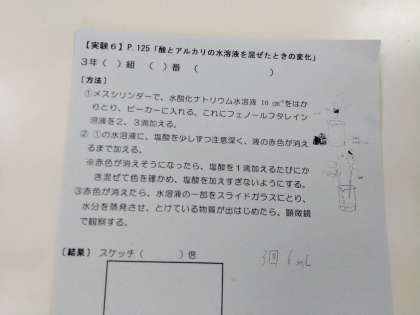 【実験6】P.125「酸とアルカリの水溶液を混ぜたときの変化」
3年（　）組　（　）番　（　　　　　　　）
〔方法〕
①メスシリンダーで、水酸化ナトリウム水溶液 10 cm³をはか
りとり、ビーカーに入れる。これにフェノールフタレイン
溶液を2、3滴加える。
② ①の水溶液に、塩酸を少しずつ注意深く、液の赤色が消え
るまで加える。
※赤色が消えそうになったら、塩酸を1滴加えるたびにか
き混ぜて色を確かめ、塩酸を加えすぎないようにする。
③赤色が消えたら、水溶液の一部をスライドガラスにとり、
水分を蒸発させ、とけている物質が出はじめたら、顕微鏡
で観察する。
〔結果〕 スケッチ（　　　　）倍
3回 6mL